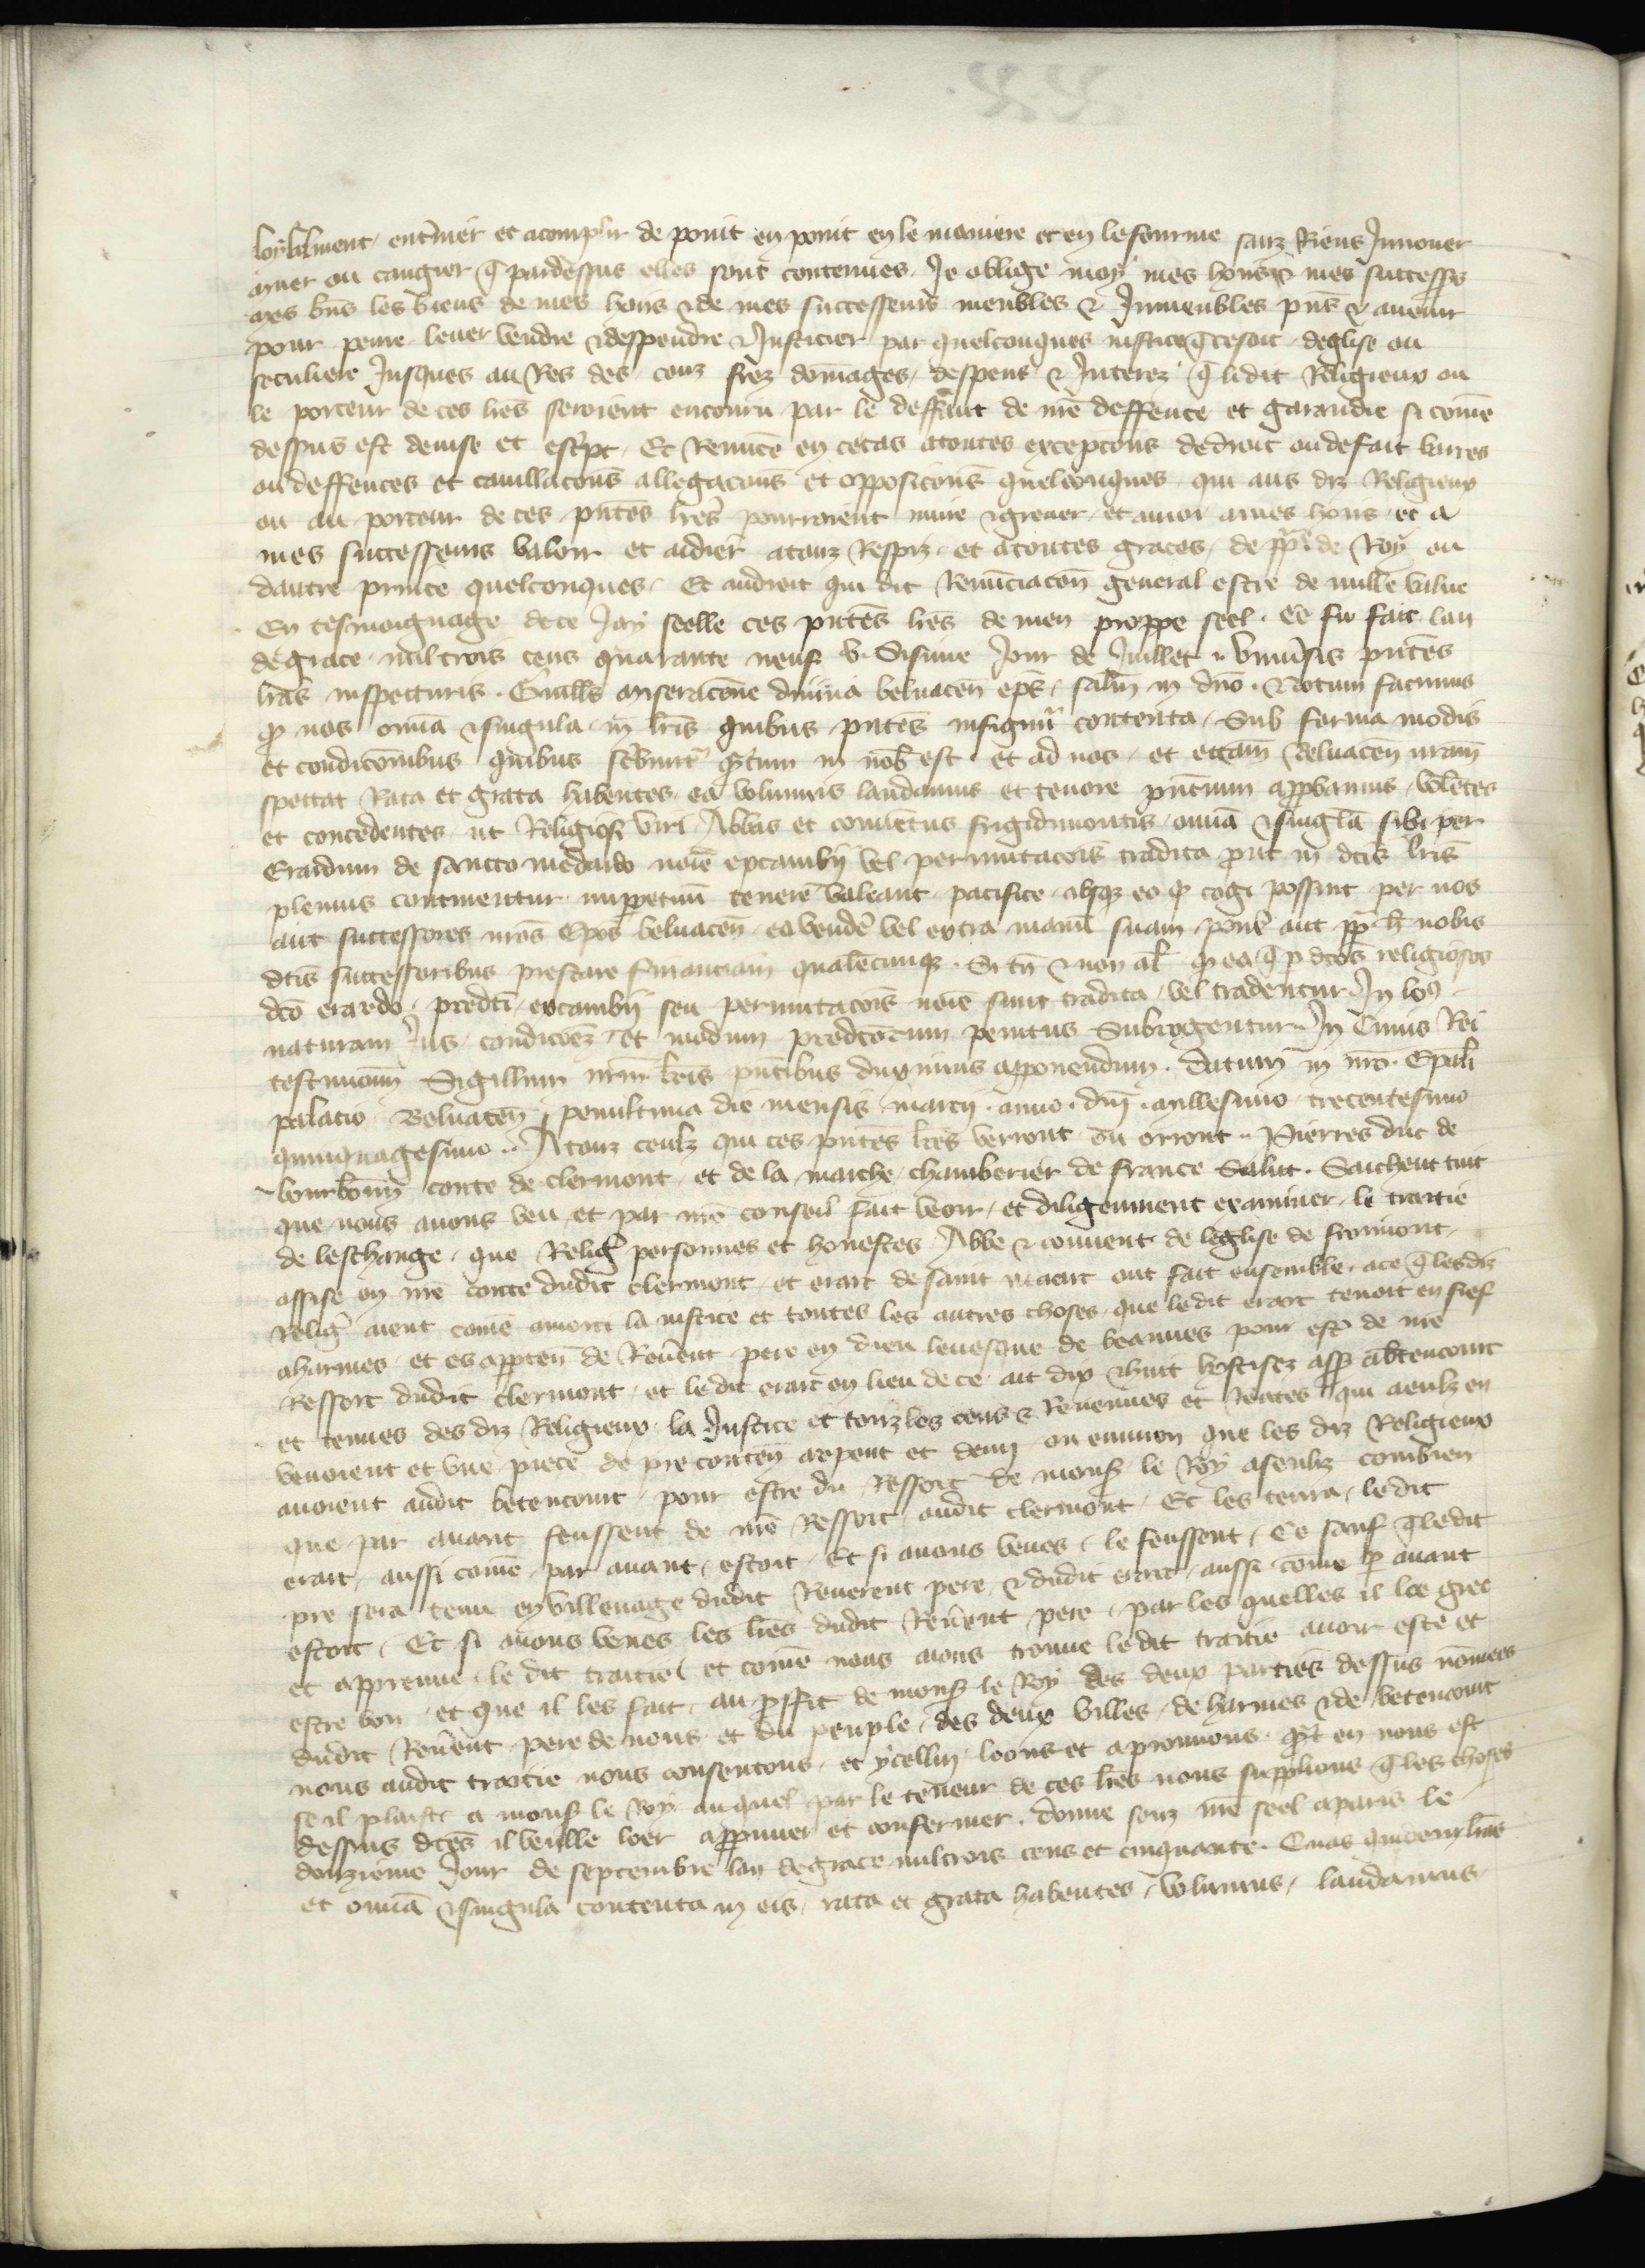 loialment, entriner et acomplir de point en point en le maniere et en le fourme sanz Riens Innouer
amer ou cangier q̄ par dessus elles sont contenues. Je oblige moy mes hoirs & mes successrs
mes bñs les biens de mes hoirs & de mes successeurs meubles & Inmeubles pñs & auenir
pour penre leuer vendre & despendre & Justicier par quelconques justice q̄ ce soit deglise ou
seculiere Jusques au Res des couz frez domages, despens & Jnterez q̄ li dit Religieux ou
le porteur de ces lr̃es seroient encouru par le deffaut de mẽ deffence et garandie si comẽ
dessus est deuise et escript. Et Renũce en ce cas a toutes excepcõns de droit ou de fait barres
ou deffences et cauillacõns allegacõns et opposicõns quelconques qui aus diz Religieux
ou au porteur de ces pñtes lr̃es pourroient nuire & greuer, et a moi a mes hoirs et a
mes successeurs valoir et aidier a touz Respiz et a toutes graces, de pp̃e de Roy ou
dautre prince quelconques. Et au droit qui dit Renũciacõn general estre de nulle value
En tesmoignage de ce Jay seelle ces pñtes lr̃es de men proppe seel. Ce fu fait lan
de grace mil trois cens quarante neuf v. Sisime Jour de Juillet .. Vniu̾sis pñtes
lr̃as inspecturis. Guill̃s miseracõne diuina beluaceñ ep̃s, salt̃m in dño. Notum facimus
q̃ nos om̃ia & singula in lr̃is quibus pñtes infigunt̃ contenta, Sub forma modis
et condicõnibus quibus scribunt̃ q̃ntum in nob̃ est et ad nos, et eccãm Beluaceñ nr̃am
spectat Rata et grata habentes, ea volumus laudamus et tenore pñcium approbamus, volẽtes
et concedentes ut Religiosi viri Abbas et conuẽtus frigidimontis om̃ia & singl̃a sibi per
Erardum de sancto medardo noĩe excambij vel permutacõis tradita prout in dc̃is lr̃is
plenius continentur imppetuũ tenere valeant pacifice absq̃ eo q̃ cogi possint per nos
aut successores nr̃os Ep̃os beluaceñ ea vende̾ vel extra manũ suam pone̾ aut pp̃t h̾ nobis
dc̃is successoribus prestare financiam qualẽcunq̃. Si tñ & non al̾ q̃ ea q̃ p dc̃os religiosos
dc̃o erardo, predc̃i excambij seu permutacõis noĩe sunt tradita, vel tradentur In loc̃
naturam Jus, condicõeз et modum predc̃orum penitus Subrogentur. In Cuius Rei
testimoniũ Sigillum nr̃m lr̃is pñtibus duximus apponendum. Datum in nr̃o Ep̃ali
palatio Beluaceñ penultima die mensis marcij. anno. dñi. millesimo trecentesimo
quinquagesimo.. A touz ceulz qui ces pñtes lr̃es verront ou orront .. Pierres duc de
bourbonñ conte de clermont, et de la marche, chamberier de france Salut. Saichent tuit
que nous auons veu et par nr̃e conseil fait veoir, et diligenment examiner, le traitie
de leschange, que Relig̃ personnes et honestes Abbe & conuent de leglise de froimont,
assise en nr̃e conte dudit clermont et erart de saint maart ont fait ensemble. a ce q̃ lesdiz
Relig̃ aient comẽ amorti la justice et toutes les autres choses, que ledit erart tenoit en fief
a harmes et es apparteñ de Reu̾ent pere en dieu leuesque de beauues pour est̾ de nr̃e
Ressort dudit clermont, et ledit erart en lieu de ce ait dix & huit hostisez assis a betencourt
et tenues des diz Religieux la Justice et touz les cens & Reuenues et rentes qui a eulz en
venoient et vne piece de pre conteñ arpent et demi ou enuiron que les diz Religieux
auoient audit betencourt, pour estre du Ressort de mons̾ le Roy a senliz combien
que par auant feussent de nr̃e Ressort audit clermont. Et les tenra ledit
erart, aussi comẽ par auant, estoit. Et si auons veues, le feussent, Ce sauf q̃ ledit
pre sera tenu en villenage dudit Reuerent pere & dudit erart, aussi comẽ p̃ auant
estoit, Et si auons veues les lr̃es dudit Reu̾ent pere, par les quelles il loe gree
et appreuue le dit traitie, et comẽ nous aions trouue ledit traitie auoir este et
estre bon et que il les fait au proffit de mons̾ le Roy des deux parties dessus nõmees
dudit Reu̾ent pere de nous et du peuple, des deux villes, de harmes & de betencourt
nous audit traitie nous consentons, et ycellui loons et aprouuons q̃nt en nous est
se il plaist a mons̾ le Roy auquel par le teneur de ces lr̃es nous supplions q̃ les choses
dessus dc̃es il veulle loer appruuer et confermer. donne souz nr̃e seel a paris le
douzieme Jour de septembre lan de grace mil trois cens et cinquante. Quas quidem lr̃as
et om̃ia & singula contenta in eis, rata et grata habentes, volumus, laudamus,